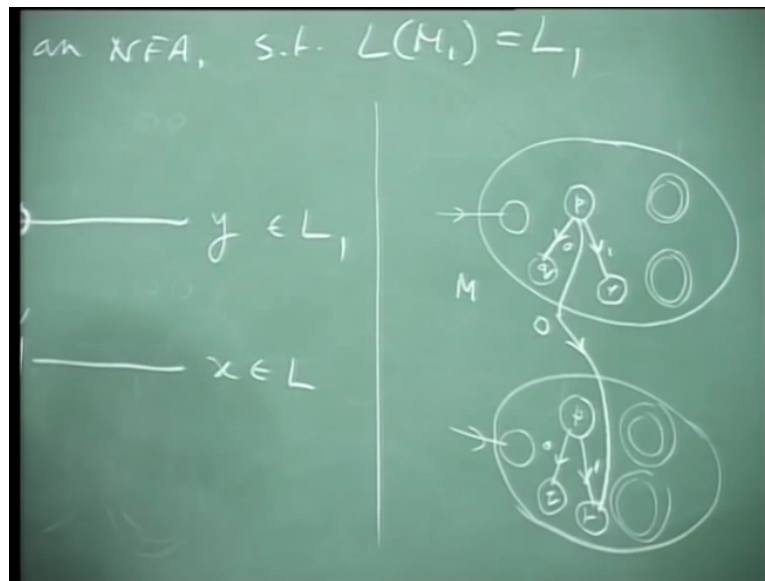 an NFA, s.t. L(M₁) = L₁
y ∈ L₁
x ∈ L
M
p
0
1
q
r
0
p
0
1
r